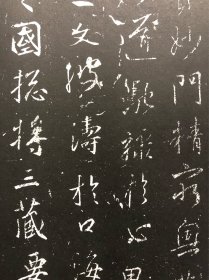 妙門精窮奧
道馳驟於心田
之文波濤於口海
之國揔將三藏要